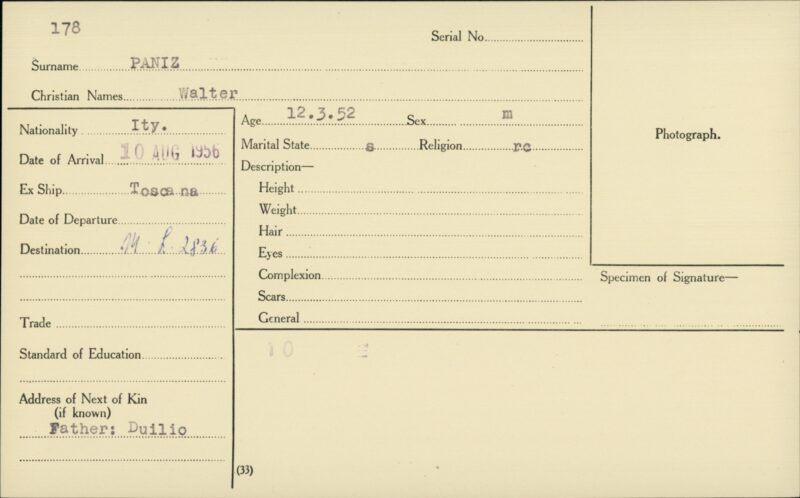 178
Serial No.
Surname PANIZ
Christian Names Walter
Nationality Ity.
Date of Arrival 10 AUG 1956
Ex Ship Toscana
Date of Departure
Destination M. L. 2836
Trade
Standard of Education
Address of Next of Kin
(if known)
Father: Duilio
Age 12.3.52 Sex m
Marital State s Religion rc
Description—
Height
Weight
Hair
Eyes
Complexion
Scars
General
10
(33)
Photograph.
Specimen of Signature—